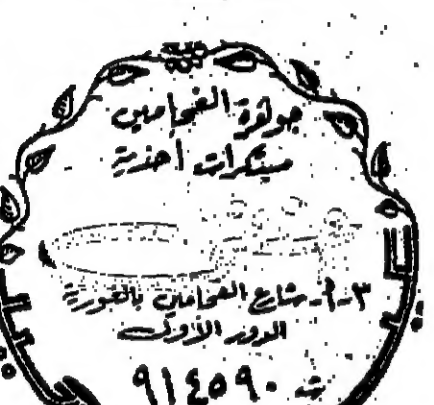 جوهرة الفحامين
مبتكرات أحذية
٣ - أ - شارع الفحامين بالغورية
الدور الأول
ت ٩١٤٥٩٠